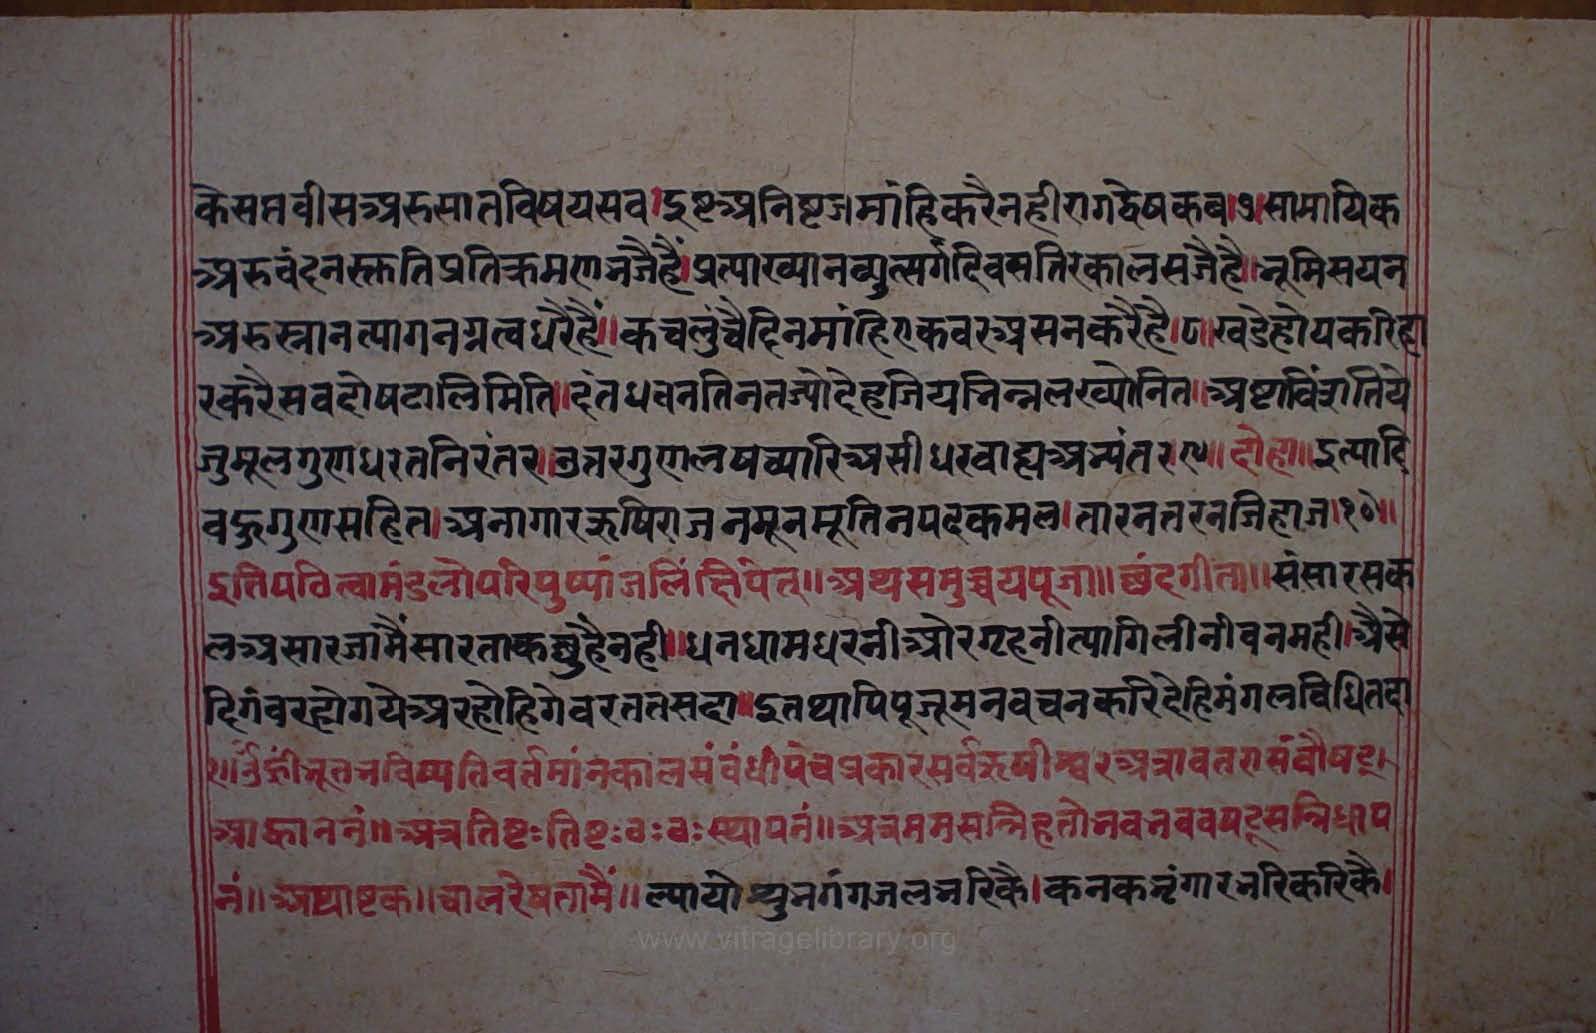 कैसप्तवीसअरुसातविषयसव।इष्टअनिष्टजमांहिकरैनहीरागद्वेषकब।७।सामायिक
अरुवंदनस्क्ततिप्रतिक्रमणभजैहैं।प्रत्याख्यानव्युत्सर्गदिवसतिरकालसजैहै॥भूमिसयन
अरुस्नानत्यागनग्नत्वधरैहैं॥कचलुंचैदिनमांहिएकवरअसनकरैहै।८॥खडेहोयकरिहा
रकरैसवदोषटालिमिति॥दंतधवनतिनतज्योदेहजियभिन्नलख्योनित॥अष्टाविंशतिये
जुमूलगुणधरतनिरंतर॥उत्तरगुणलषच्यारिअसीधरवाह्यअभ्यंतर।९॥दोहा॥इत्यादि
वहुगुणसहित।अनागारऋषिराजनमूनमूतिनपदकमल।तारनतरनजिहाज।१०॥
इतिपठित्वामंडलोपरिपुष्पांजलिंक्षिपेत्॥अथसमुच्चयपूजा॥छंदगीता॥संसारसक
लअसारजामैंसारताकछुहैनही॥धनधामधरनीओरगृहनीत्यागिलीनीवनमही।अैसे
दिगंवरहोगयेअरहोहिगेवरततसदा॥इतथापिपूजूमनवचनकरिदेहिमंगलविधितदा
।१।ॐह्रींभूतभविष्यतिवर्तमांनकालसंवंधीपंचप्रकारसर्वऋषीश्वरअत्रावतरसंवौषट्।
आह्वाननं॥अत्रतिष्टःतिष्टःठःठःस्थापनं॥अत्रममसन्निहतोभवभववषट्सन्निधाप
नं॥अथाष्टक॥चालरेषतामैं॥ल्यायोशुभगंगजलभरिकै।कनकभृंगारभरिकरिकै।
www.vitragelibrary.org